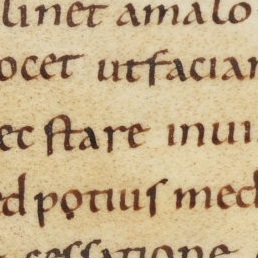 linet amalo
ocet utfacian
ec stare inui
ed potius med
cessatione